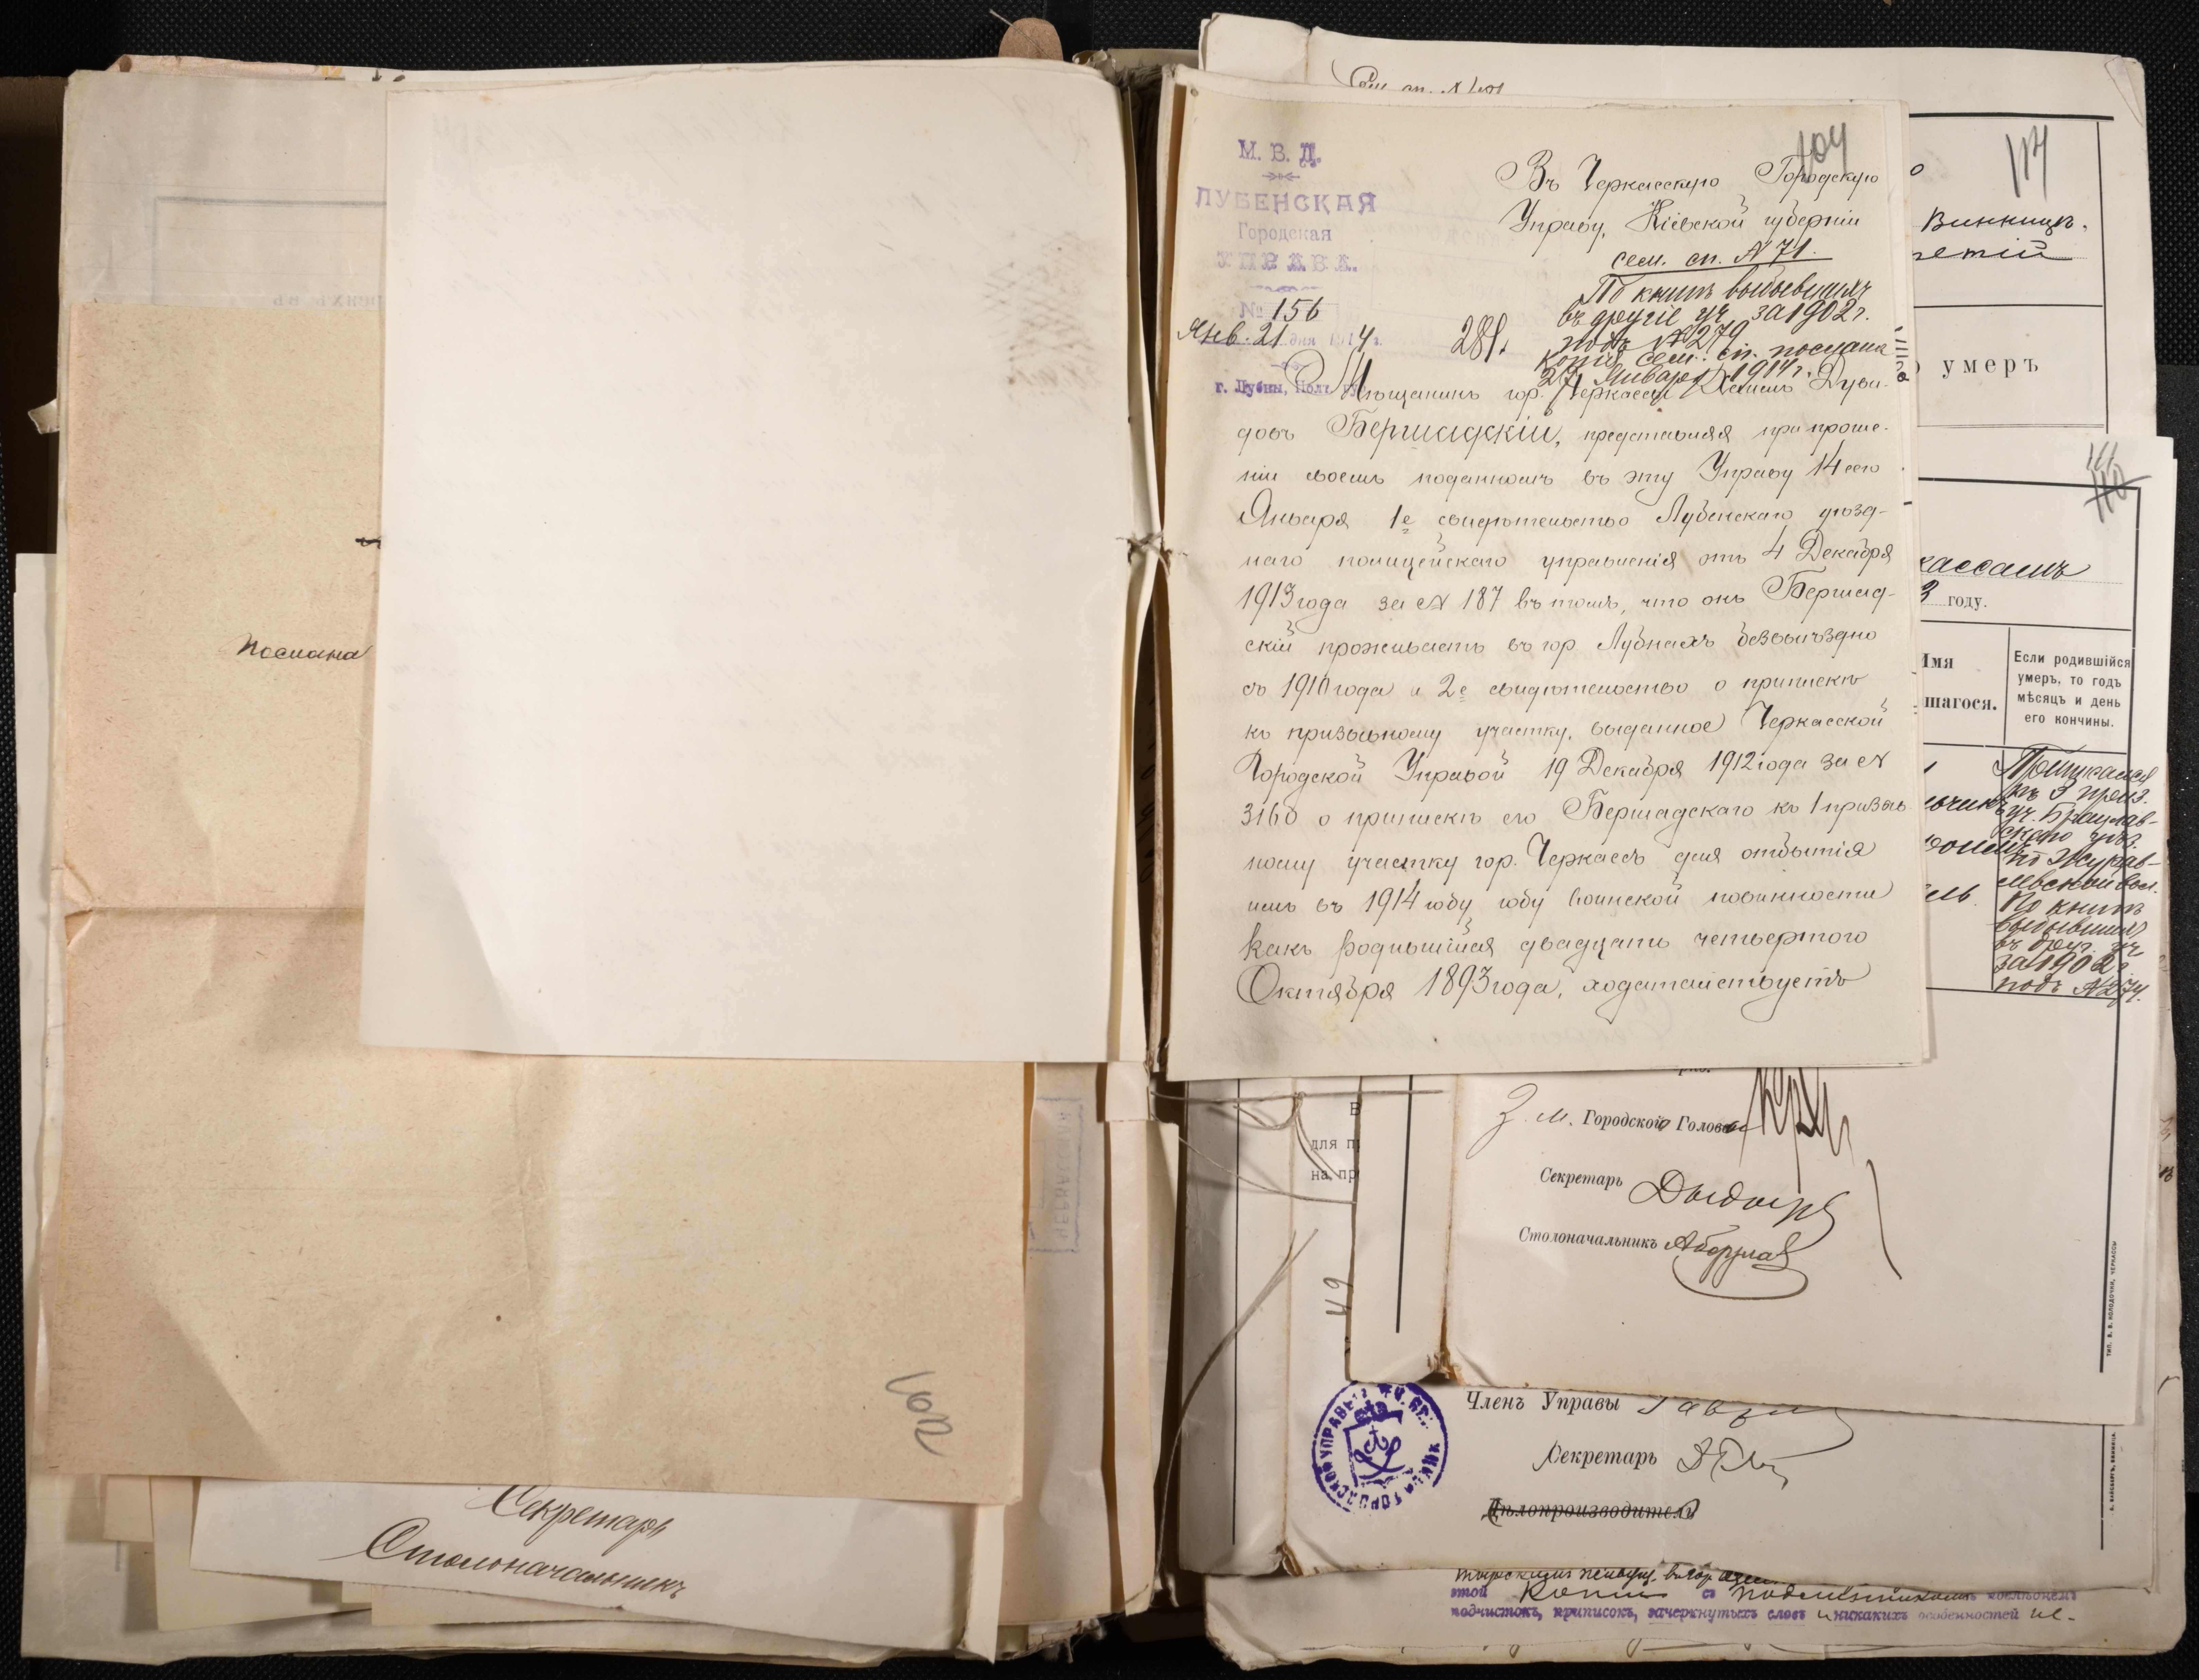 Посмана
102
Секретарь
Столоначальникъ
Сем. сп. №
М. В. Д.
ЛУБЕНСКАЯ
Городская
УПРАВА.
№ 156
Янв. 21 дня 1914 г.
г. Лубны, Полт. губ.
104
Въ Черкасскую Городскую
Управу, Кіевской губерніи
сем. сп. № 71.
По книгѣ выбывшихъ
въ другіе уч. за 1902 г.
подъ № 279
копія сем. сп. послана
27 Января 1914 г.
281.
Мѣщанинъ гор. Черкассъ Дуви-
довъ Бершадскій, представляя при проше-
ніи своемъ поданномъ въ эту Управу 14 сего
Января 1е свидѣтельство Лубенскаго уѣзд-
наго полицейскаго управленія отъ 4 Декабря
1913 года за № 187 въ томъ, что онъ Бершад-
скій проживаетъ въ гор. Лубнахъ безвыѣздно
съ 1910 года и 2е свидѣтельство о припискѣ
къ призывному участку, выданное Черкасской
Городской Управой 19 Декабря 1912 года за №
3160 о припискѣ его Бершадскаго къ 1 призыв-
ному участку гор. Черкассъ для отбытія
имъ въ 1914 году году воинской повинности
какъ родившійся двадцать четвертого
Октября 1893 года, ходатайствуетъ
117
о
Винницъ.
умеръ
111
110
кассамъ
3 году.
Имя
шагося.
Если родившійся
умеръ, то годъ
мѣсяцъ и день
его кончины.
къ 3 приз.
уч. Брацлав-
скаго уѣз.
по Журав-
левской вол.
По книгѣ
выбывшихъ
въ друг. уч
за 1902 г.
подъ № 274.
З. м. Городского Головы
Секретарь
Столоначальникъ
для п
на пр
Членъ Управы
Секретарь
Дѣлопроизводитель
этой копіи съ подлиннымъ
подчистокъ, приписокъ, зачеркнутыхъ словъ и никакихъ особенностей не-
ТИП. В. В. КОЛОДОЧКИ, ЧЕРКАССЫ